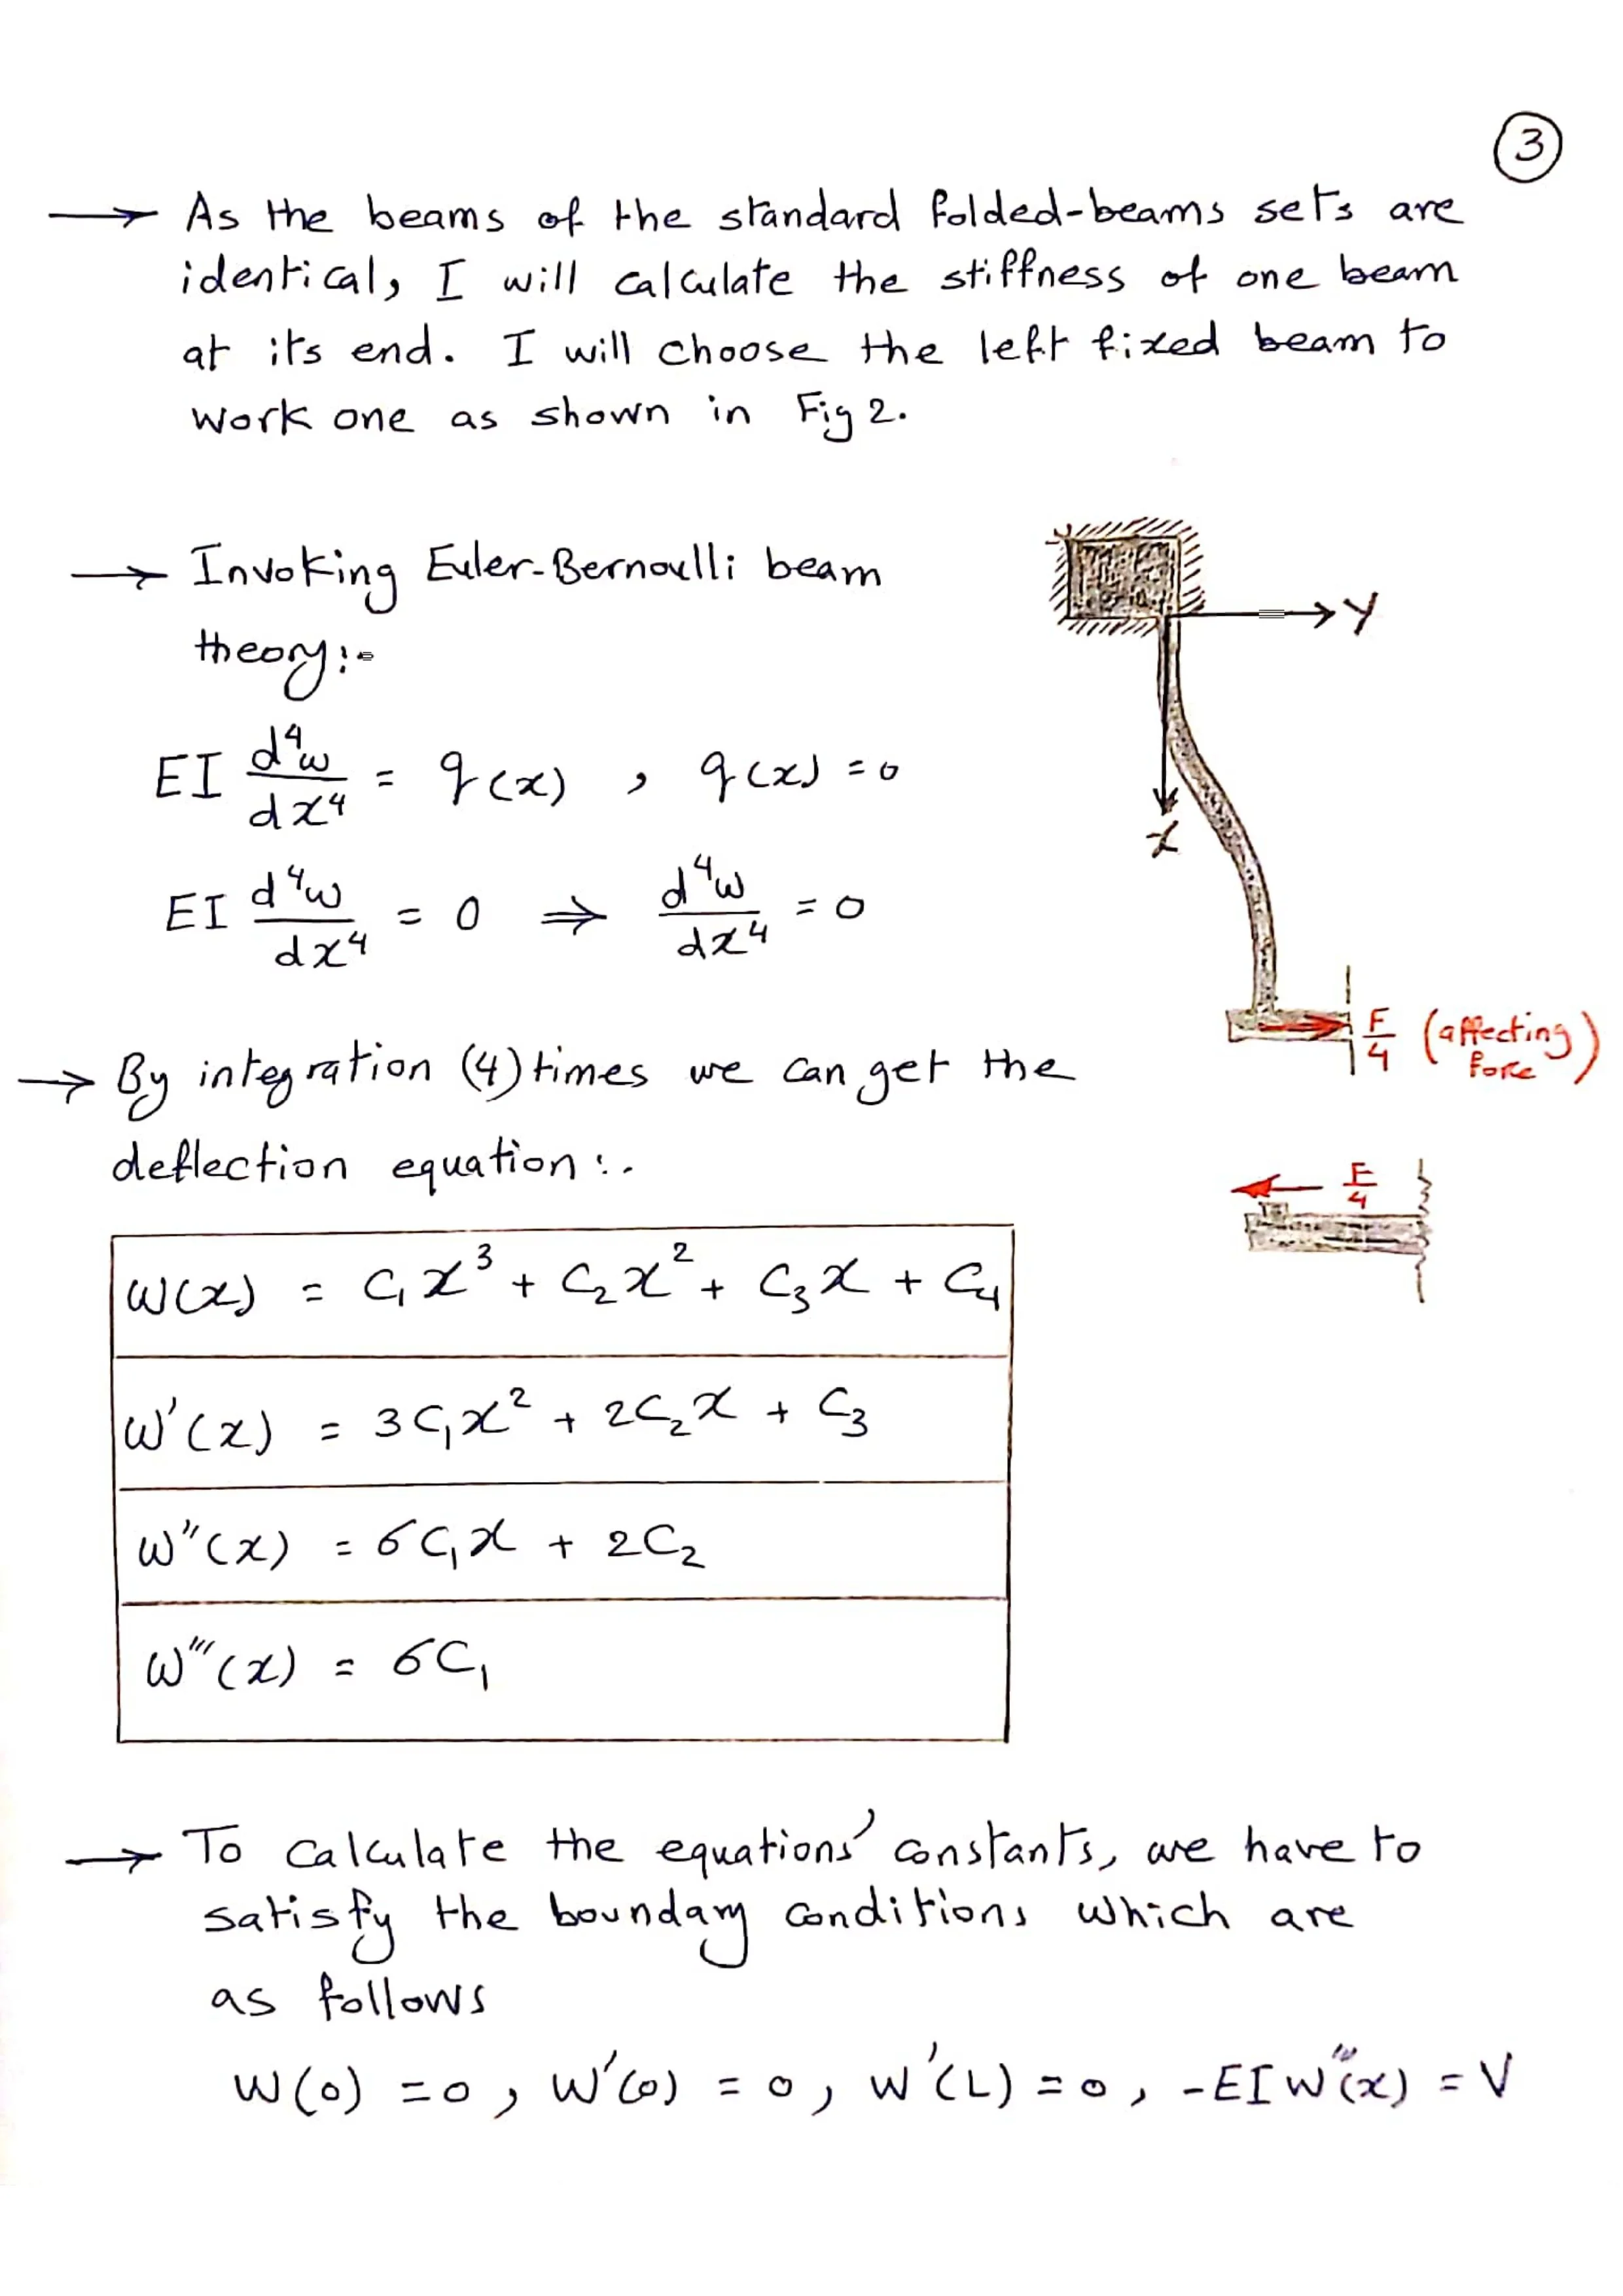 3
→ As the beams of the standard folded-beams sets are
identical, I will calculate the stiffness of one beam
at its end. I will choose the left fixed beam to
work one as shown in Fig 2.
→ Invoking Euler-Bernoulli beam
theory:-
EI d⁴w/dx⁴ = q(x) , q(x) = 0
EI d⁴w/dx⁴ = 0 ⇒ d⁴w/dx⁴ = 0
Y
x
F/4 (affecting
force)
→ By integration (4) times we can get the
deflection equation:.
F/4
w(x) = C₁x³ + C₂x² + C₃x + C₄
w'(x) = 3C₁x² + 2C₂x + C₃
w''(x) = 6C₁x + 2C₂
w'''(x) = 6C₁
→ To calculate the equations' constants, we have to
satisfy the boundary conditions which are
as follows
w(0) = 0, w'(0) = 0, w'(L) = 0, -EI w'''(x) = V